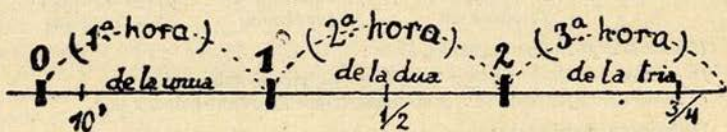 0 (1ª hora) 1 (2ª hora) 2 (3ª hora)
de la unua de la dua de la tria
10' 1/2 3/4